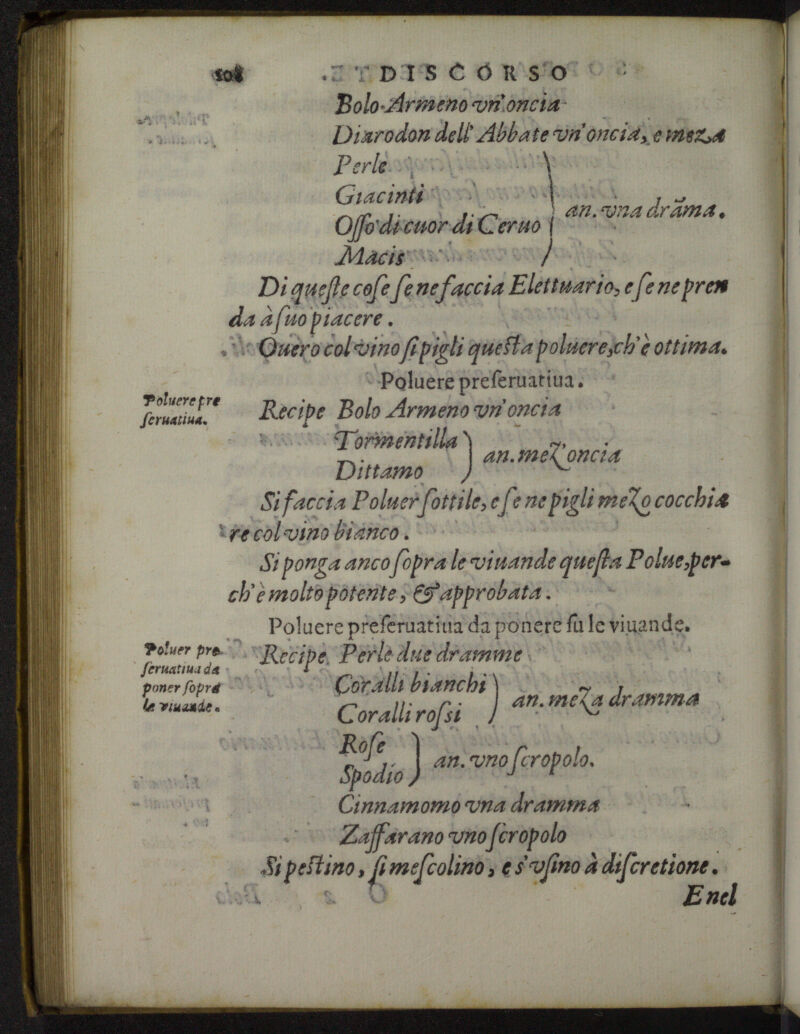 108 DISCORSO
Bolo Armeno vn'oncia
Diarodon dell'Abbate vn'oncia, e meza
Perle
Giacinti
Osso di cuor di Ceruo
Macis
an. vna drãma.
Di queste cose se ne faccia Elettuario, e se ne pren
da à suo piacere.
Ouero col vino si pigli questa poluere, ch'è ottima.
Poluere preseruatiua.
Poluere pre
seruatiua.
Recipe Bolo Armeno vn'oncia
Tormentilla
Dittamo
an. mez'oncia
Si faccia Poluer sottile, e se ne pigli mezo cocchia
re col vino bianco.
Si ponga anco sopra le viuande questa Polue, per-
ch'è molto potente, & approbata.
Poluere preseruatiua da ponere sù le viuande.
Poluer pre-
seruatiua da
poner sopra
le viuande.
Recipe Perle due dramme
Coralli bianchi
Coralli rossi
an. meza dramma
Rose
Spodio
an. vno scropolo.
Cinnamomo vna dramma
Zaffarano vno scropolo
Si pestino, si mescolino, e s'vsino à discretione.
E nel